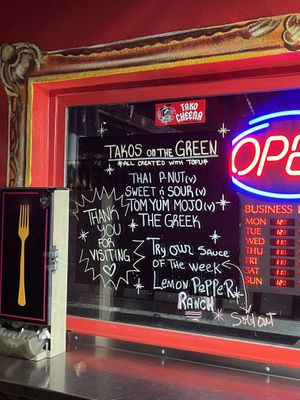 TAKO
CHEENA
TAKOS ON THE GREEN
*ALL CREATED WITH TOFU*
THAI P-NUT (V)
SWEET N' SOUR (V)
TOM YUM MOJO (V)
THE GREEK
THANK
YOU
FOR
VISITING
TRY OUR SAUCE
OF THE WEEK
LEMON PEPPER
RANCH
SOLD OUT
OPE
BUSINESS
MON
TUE
WED
THU
FRI
SAT
SUN